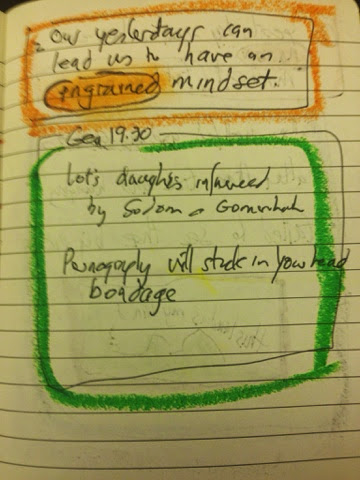 Our yesterdays can
lead us to have an
engrained mindset.
Gen 19:30
Lot's daughters influenced
by Sodom & Gomorrah
Pornography will stick in your head
bondage